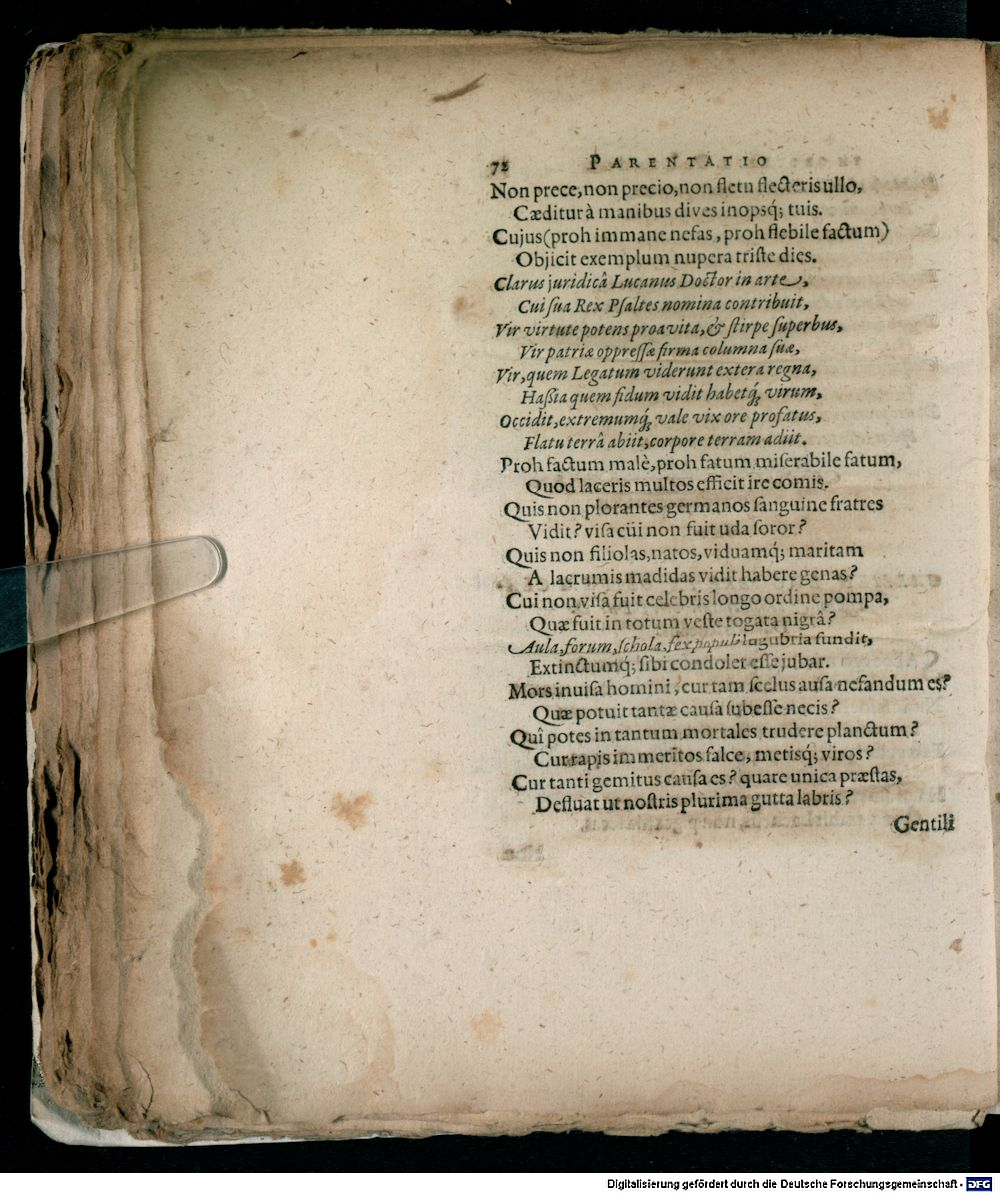 72 PARENTATIO
Non prece, non precio, non fletu flecteris ullo,
Cæditur à manibus dives inopsq́; tuis.
Cujus (proh immane nefas, proh flebile factum)
Objicit exemplum nupera triste dies.
Clarus juridicâ Lucanus Doctor in arte,
Cui sua Rex Psaltes nomina contribuit,
Vir virtute potens proavita, & stirpe superbus,
Vir patriæ oppressæ firma columna suæ,
Vir, quem Legatum viderunt extera regna,
Hassia quem fidum vidit habetq́; virum,
Occidit, extremumq́; vale vix ore profatus,
Flatu terrâ abiit, corpore terram adiit.
Proh factum malè, proh fatum miserabile fatum,
Quod laceris multos efficit ire comis.
Quis non plorantes germanos sanguine fratres
Vidit? visa cüi non fuit uda soror?
Quis non filiolas, natos, viduamq́; maritam
A lacrumis madidas vidit habere genas?
Cui non visa fuit celebris longo ordine pompa,
Quæ fuit in totum veste togata nigrâ?
Aula, forum, schola, fex populi lugubria fundit,
Extinctumq́; sibi condolet esse jubar.
Mors inuisa homini, cur tam scelus ausa nefandum es?
Quæ potuit tantæ causa subesse necis?
Quî potes in tantum mortales trudere planctum?
Cur rapis immeritos falce, metisq́; viros?
Cur tanti gemitus causa es? quare unica præstas,
Defluat ut nostris plurima gutta labris?
Gentili
Digitalisierung gefördert durch die Deutsche Forschungsgemeinschaft - DFG